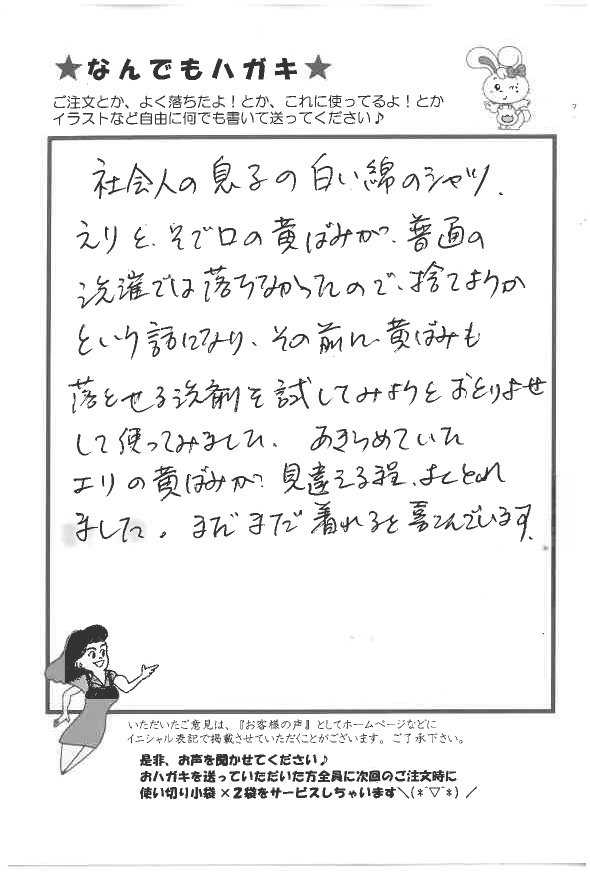 ★なんでもハガキ★
ご注文とか、よく落ちたよ！とか、これに使ってるよ！とか
イラストなど自由に何でも書いて送ってください♪
社会人の息子の白い綿のシャツ、
えりと、そで口の黄ばみが、普通の
洗濯では落ちなかったので、捨てようか
という話になり、その前に、黄ばみも
落とせる洗剤を試してみようとおとりよせ
して使ってみました。 あきらめていた
エリの黄ばみが、見違える程、よくとれ
ました。まだまだ着れると喜んでいます。
いただいたご意見は、『お客様の声』としてホームページなどに
イニシャル表記で掲載させていただくことがございます。ご了承下さい。
是非、お声を聞かせてください♪
おハガキを送っていただいた方全員に次回のご注文時に
使い切り小袋×2袋をサービスしちゃいます＼(*´▽`*)／